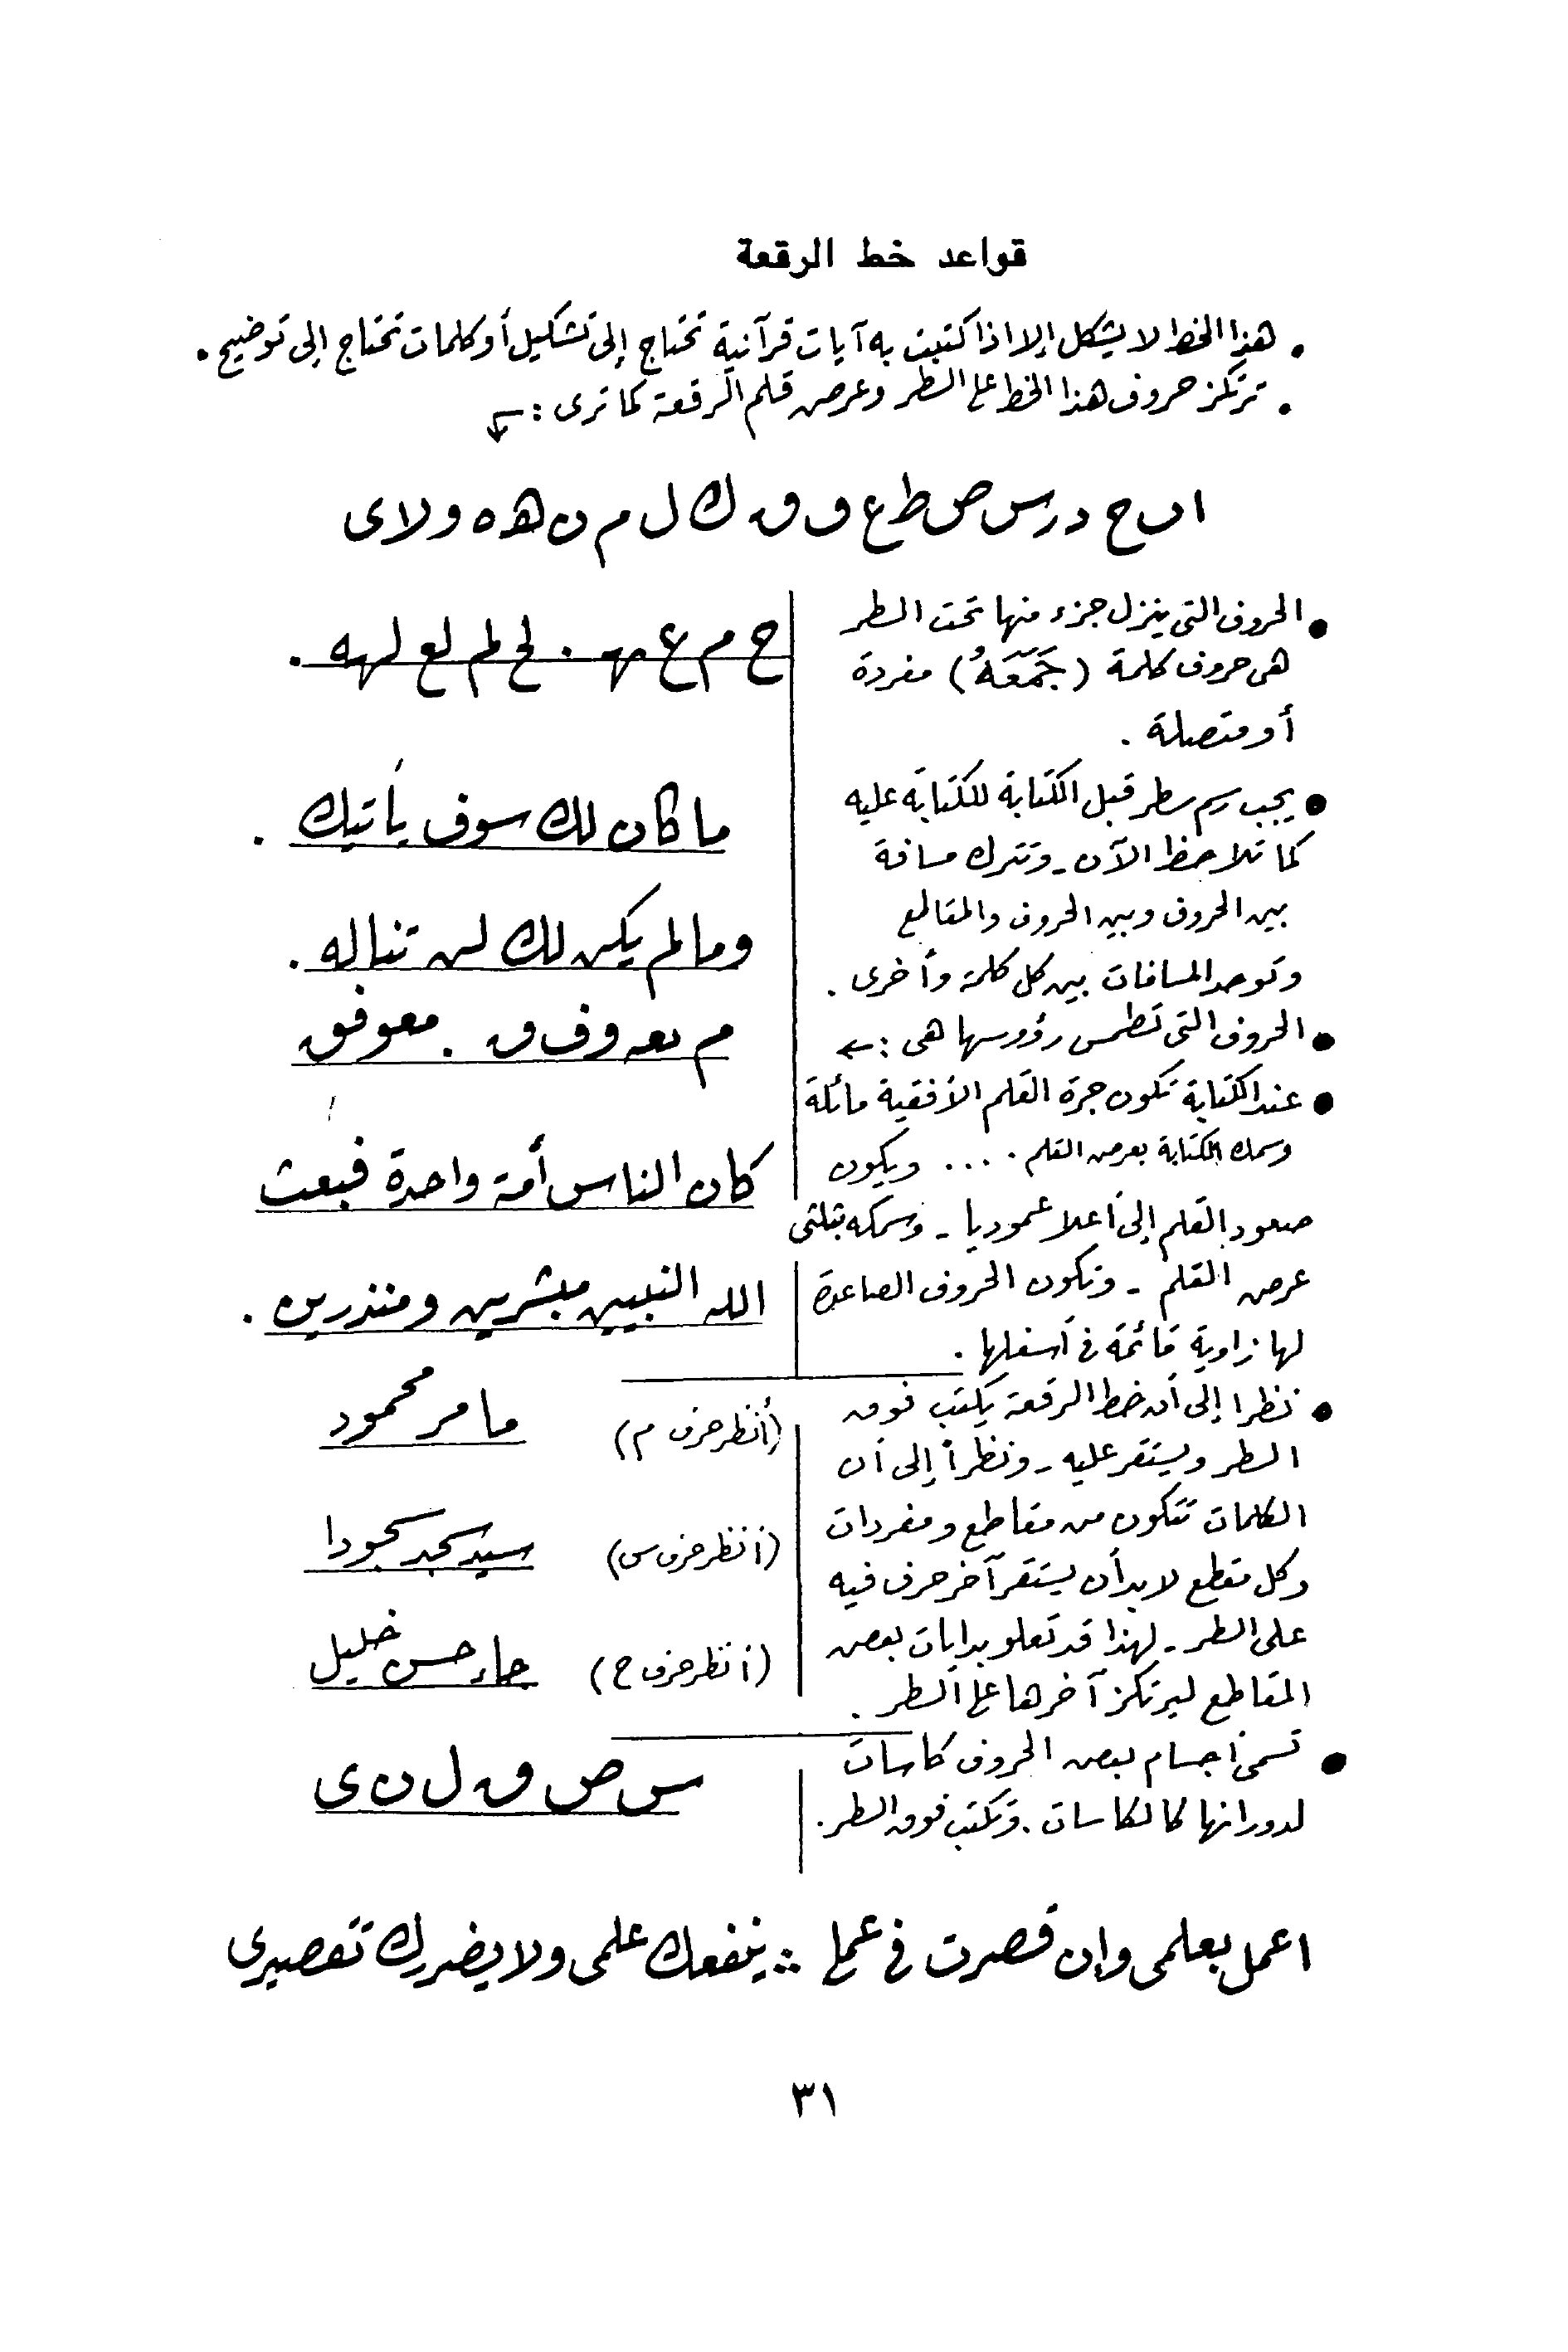 قواعد خط الرقعة
• هذا الخط لا يشكل إلا اذا كتبت به آيات قرآنية تحتاج إلى تشكيل أو كلمات تحتاج إلى توضيح .
• ترتكز حروف هذا الخط على السطر وعرض قلم الرقعة كما ترى : ←
ا ب ح د ر س ص ط ع ف ق ك ل م ن ه ه و لا ى
• الحروف التى ينزل جزء منها تحت السطر
هى حروف كلمة ( جَمَّعَهُ ) مفردة
أو متصلة .
ح م ع ه . لح لم لع لهه .
• يجب رسم سطر قبل الكتابة للكتابة عليه
كما تلاحظ الآن - وتترك مسافة
بين الحروف وبين الحروف والمقاطع
وتوحد المسافات بين كل كلمة وأخرى .
ما كان لك سوف يأتيك .
وما لم يكن لك لن تناله .
• الحروف التى تطمس رؤوسها هى : ←
م ـعـ و ف ق . معوفق
• عند الكتابة تكون جرة القلم الأفقية مائلة
وسمك الكتابة بعرض القلم . . . . ويكون
صعود القلم إلى أعلا عموديا - وسمكه بثلثى
عرض القلم - وتكون الحروف الصاعدة
لها زاوية قائمة فى أسفلها .
كان الناس أمة واحدة فبعث
الله النبيين مبشرين ومنذرين .
• نظرا إلى أن خط الرقعة يكتب فوق
السطر ويستقر عليه - ونظراً إلى أن
الكلمات تتكون من مقاطع ومفردات
وكل مقطع لا بد أن يستقر آخر حرف فيه
على السطر - لهذا قد تعلو بدايات بعض
المقاطع ليرتكز آخرها على السطر .
(أنظر حرف م) ما مر محمود
(أنظر حرف س) سيد سجد سجودا
(أنظر حرف ح) جاء حسن خليل
• تسمى أجسام بعض الحروف كاسات
لدورانها كالكاسات . وتكتب فوق السطر .
س ص ق ل ن ى
اعمل بعلمى وإن قصرت فى عملى ∴ ينفعك علمى ولا يضررك تقصيرى
٣١